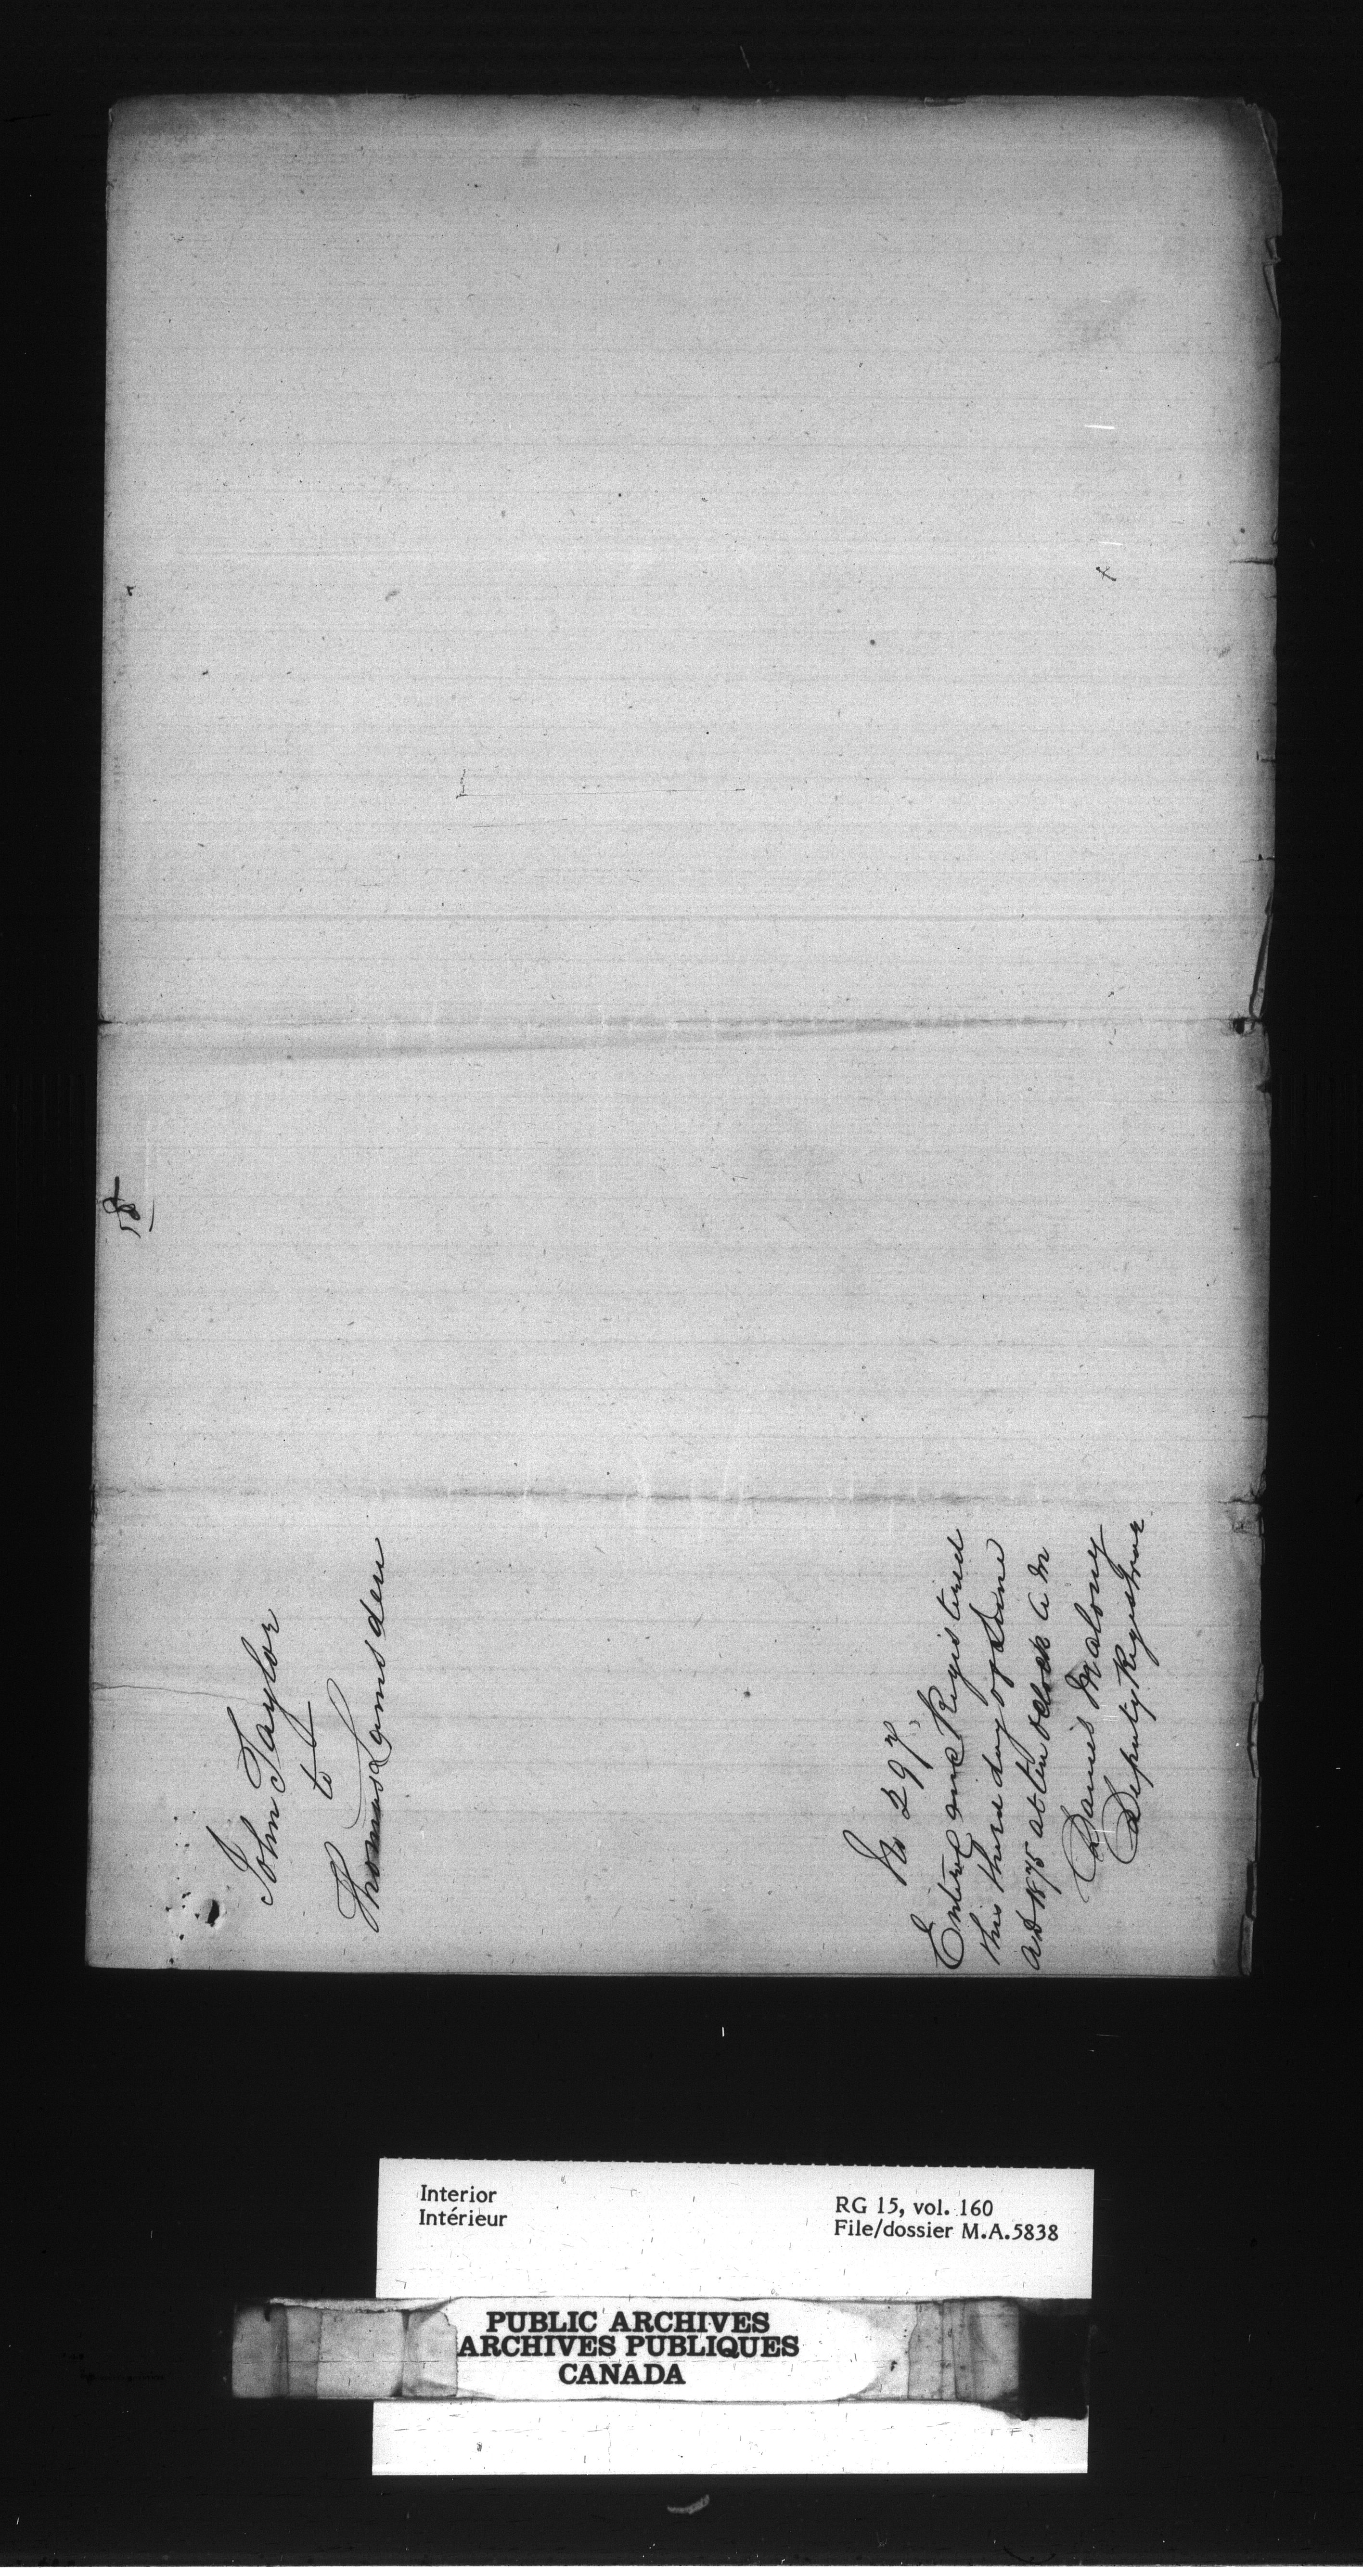 John Taylor
to
Thomas Lamsden
No 297
Entered and Registered
this third day of June
AD 1875 at ten oclock A M
Daniel Malony
Deputy Registrar
Interior
Intérieur
RG 15, vol. 160
File/dossier M.A.5838
PUBLIC ARCHIVES
ARCHIVES PUBLIQUES
CANADA